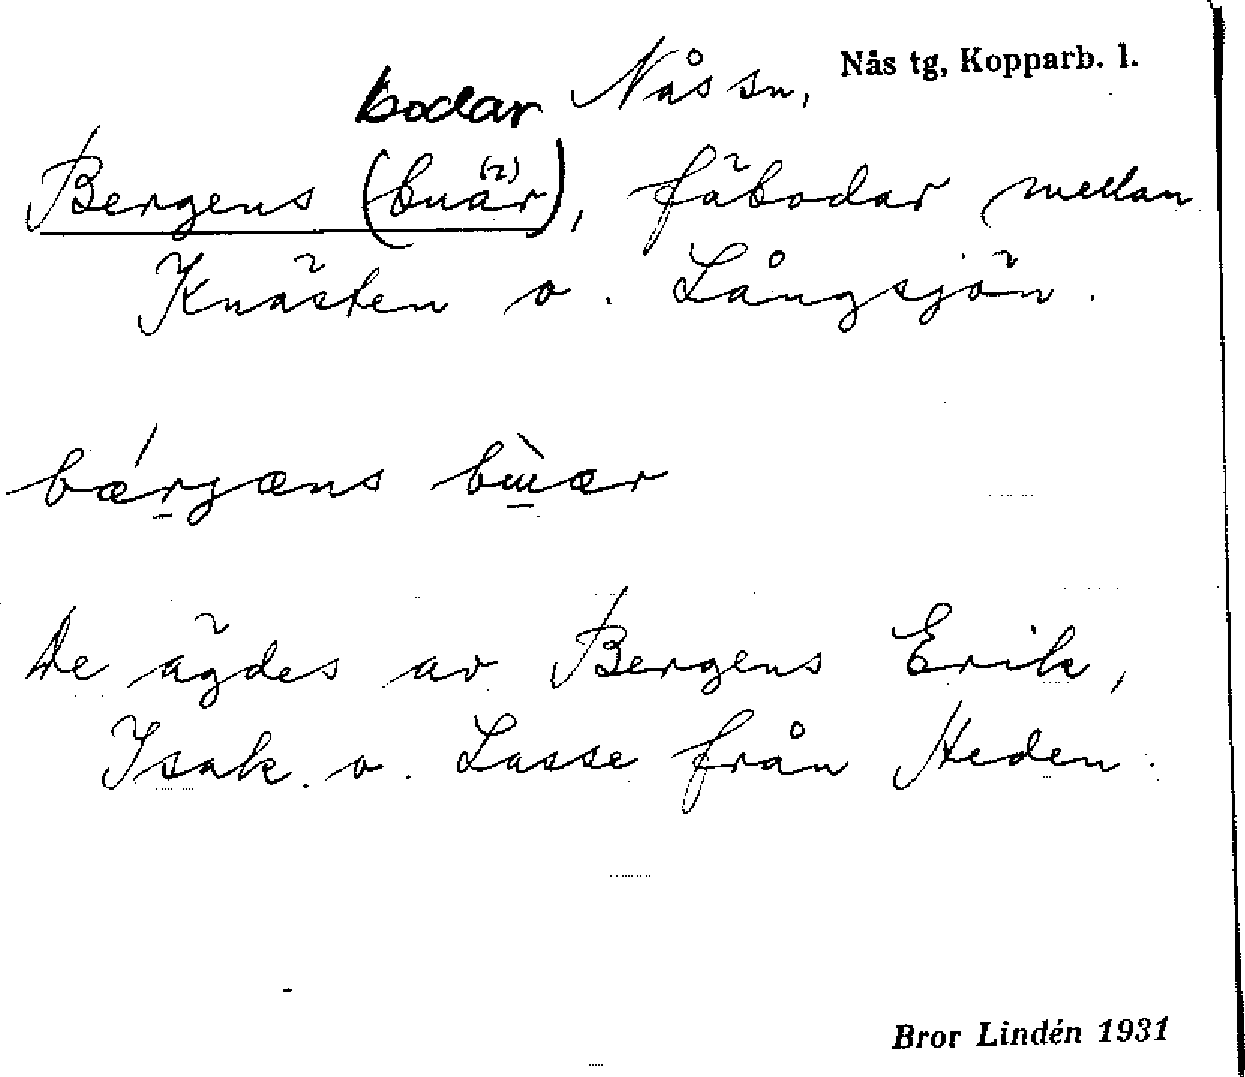 Nås tg, Kopparb. l.
bodar Nås sn,
Bergens (buär), fäbodar mellan
Knästen o. Långsjön.
bǽrgæns bɯ̀ær
De ägdes av Bergens Erik,
Isak o. Lasse från Heden.
Bror Lindén 1931